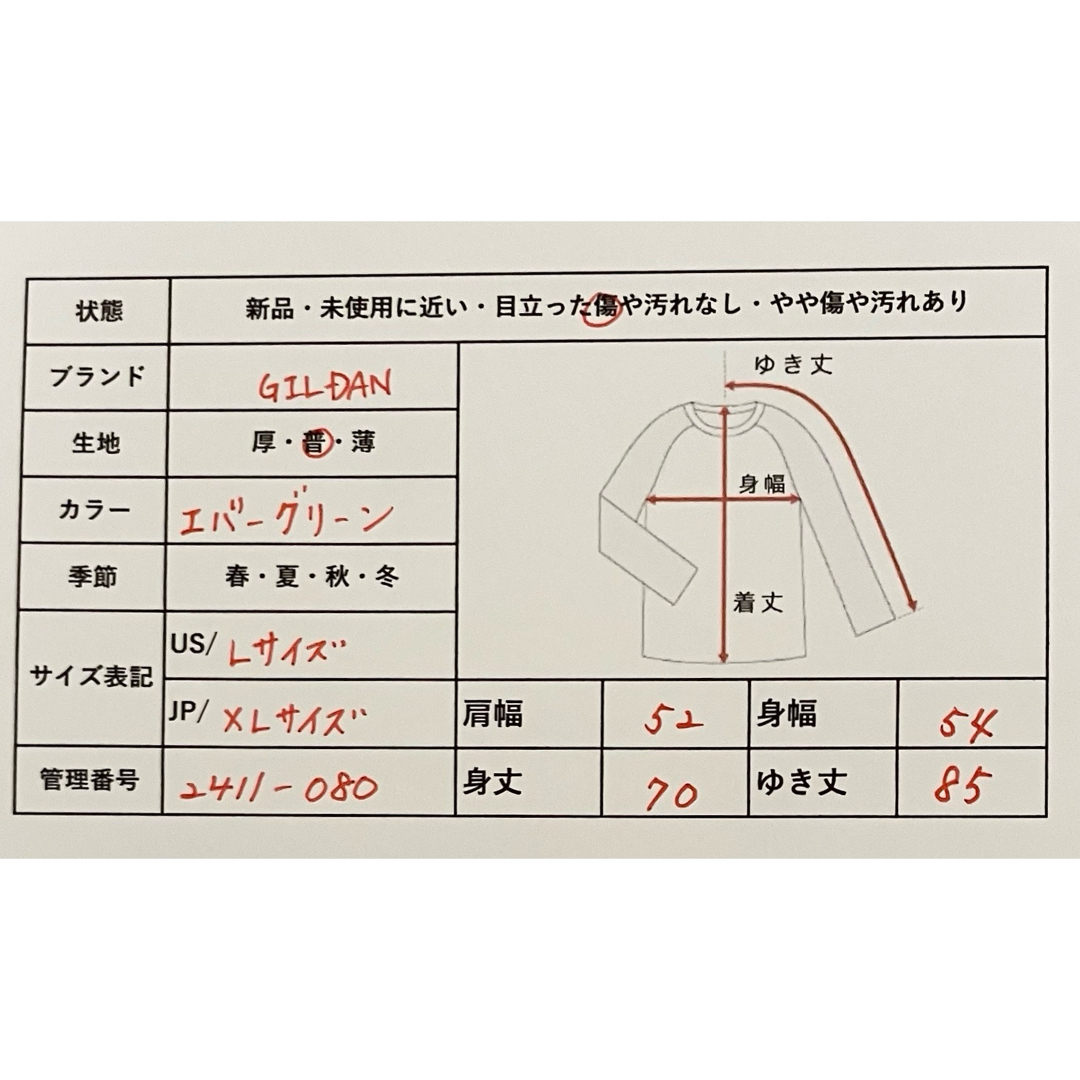 状態 新品・未使用に近い・目立った傷や汚れなし・やや傷や汚れあり
ブランド GILDAN
ゆき丈
生地 厚・普・薄
身幅
カラー エバーグリーン
季節 春・夏・秋・冬
着丈
サイズ表記
US/ Lサイズ
JP/ XLサイズ
肩幅 52 身幅 54
管理番号 2411-080 身丈 70 ゆき丈 85